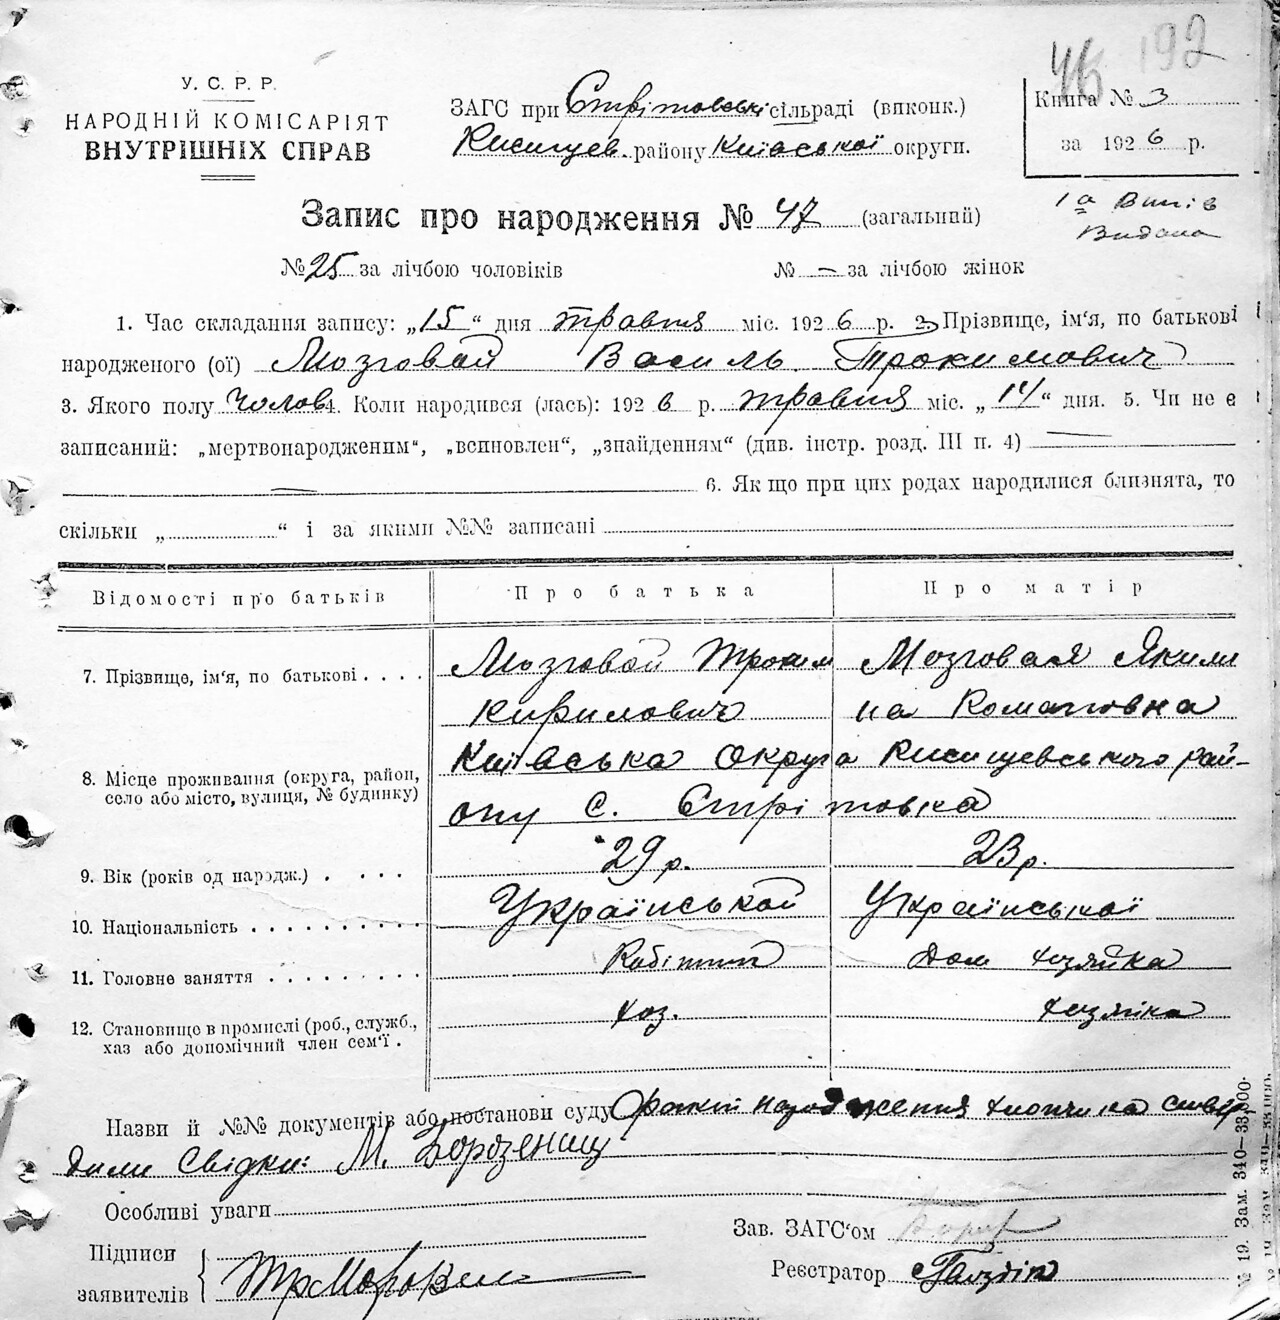 192
46
У. С. Р. Р.
НАРОДНІЙ КОМІСАРІЯТ
ВНУТРІШНІХ СПРАВ
ЗАГС при Стрітовській сільраді (виконк.)
Кисищев. району Київської округи.
Книга № 3
за 1926 р.
Видана
Запис про народження № 47 (загальний)
№ 25 за лічбою чоловіків № — за лічбою жінок
1. Час складання запису: „15“ дня травня міс. 1926 р. 2. Прізвище, ім'я, по батькові
народженого (ої) Мозговой Василь Трокимович
3. Якого полу Чолов. 4. Коли народився (лась): 1926 р. травня міс. „14“ дня. 5. Чи не є
записаний: „мертвонародженим“, „всиновлен“, „знайденням“ (див. інстр. розд. III п. 4) —
— 6. Як що при цих родах народилися близнята, то
скільки „ “ і за якими №№ записані
Відомості про батьків Про батька Про матір
7. Прізвище, ім'я, по батькові . . . . Мозговой Троким Мозговая Якили
Кирилович на Романовна
8. Місце проживання (округа, район, Київська округа Кисищевського рай-
село або місто, вулиця, № будинку) ону С. Стрітовка
9. Вік (років од народж.) . . . . 29 р. 23 р.
10. Національність . . . . . . . . . . Української Української
11. Головне заняття . . . . . . . . Дом хозяйка
12. Становище в промислі (роб., служб., хоз. хозяйка
хаз або допомічний член сем'ї .
Назви й №№ документів або постанови суду народження хлопчика ствер
дили Свідки: М.
Особливі уваги
Підписи
заявителів
Зав. ЗАГС'ом
Реєстратор
№ 19. Зам. 340—33.000.